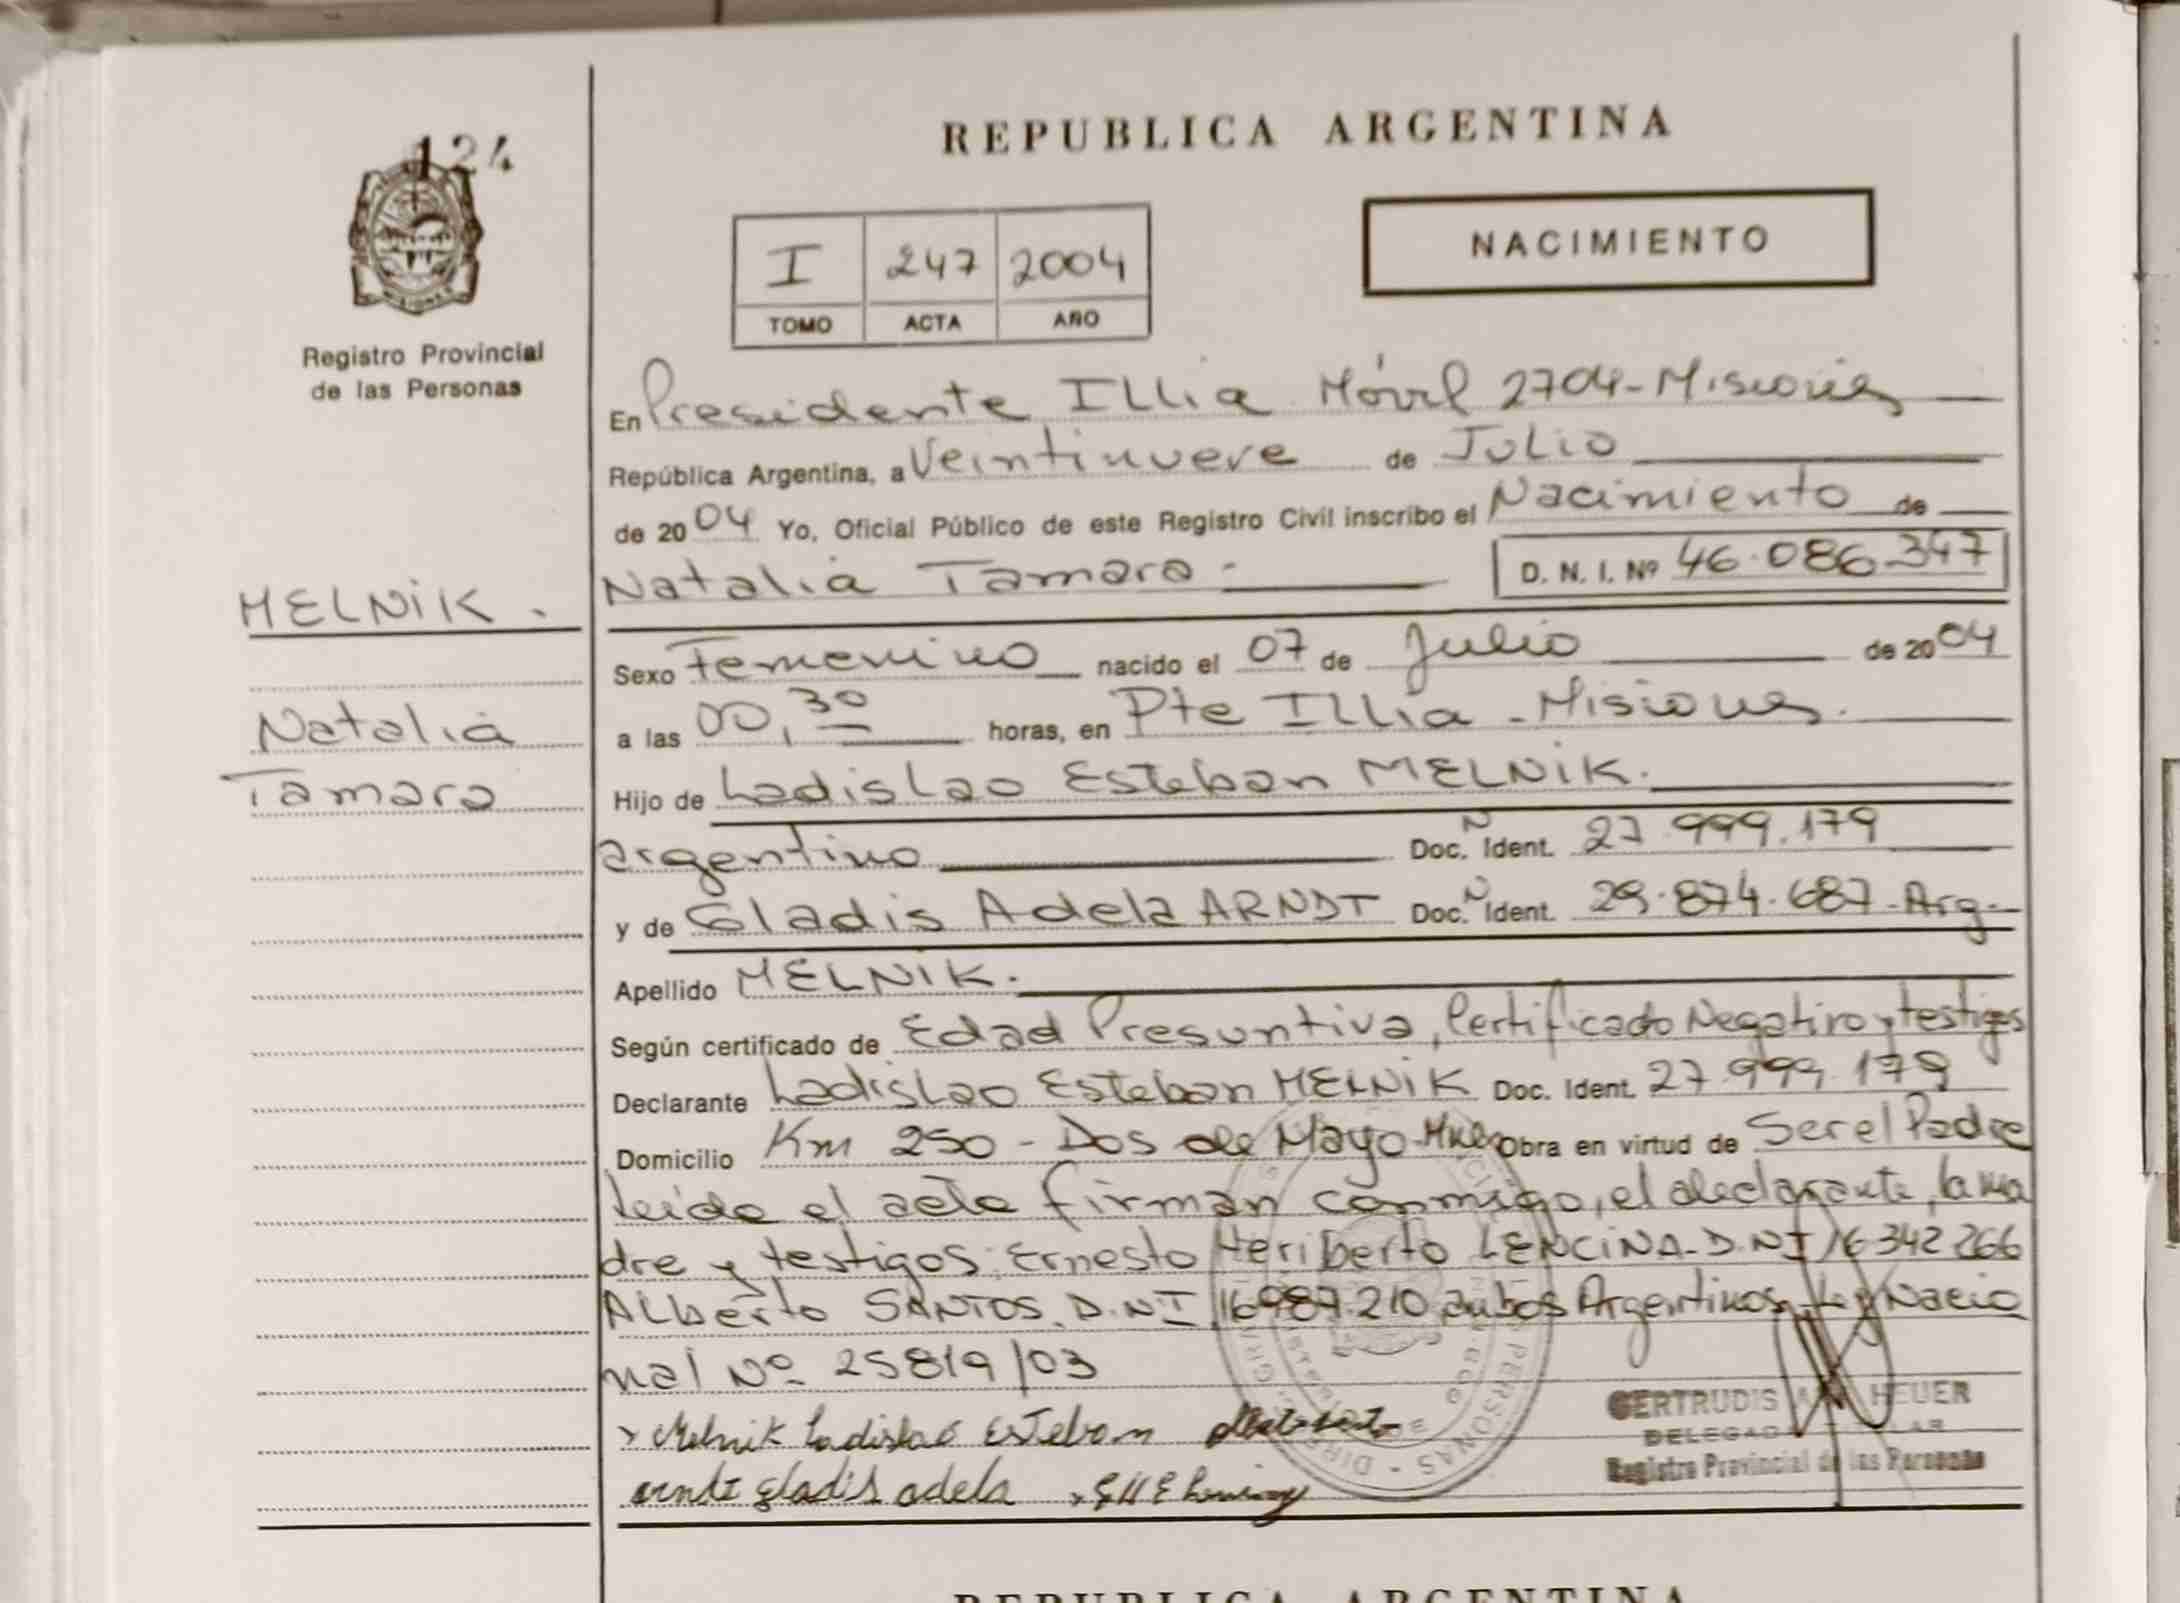 124
REPUBLICA ARGENTINA
I 247 2004
TOMO ACTA AÑO
NACIMIENTO
MISIONES
Registro Provincial
de las Personas
En Presidente Illia Móvil 2704-Misiones
República Argentina, a Veintinueve de Julio
de 2004 Yo, Oficial Público de este Registro Civil inscribo el Nacimiento de
Natalia Tamara.- D. N. I. Nº 46.086.347
MELNiK.
Natalia
Tamara
Sexo Femenino nacido el 07 de Julio de 2004
a las 00,30 horas, en Pte Illia - Misiones.
Hijo de Ladislao Esteban MELNiK.
argentino Doc. N Ident. 27.999.179
y de Gladis Adela ARNDT Doc. N Ident. 29.874.687-Arg-
Apellido MELNiK.
Según certificado de Edad Presuntiva, Certificado Negativo y testigos
Declarante Ladislao Esteban MELNiK Doc. Ident. 27.999.179
Domicilio Km 250 - Dos de Mayo- Obra en virtud de Ser el Padre
Leida el acta firman conmigo, el declarante, la ma
dre y testigos: Ernesto Heriberto LENCiNA-D.NI 16342266
Alberto SANTOS. D.NI 16987.210 ambos Argentinos. Ley Nacio
nal Nº 25819/03
Melnik Ladislao Esteban
arndt gladis adela
GERTRUDIS HEUER
Registro Provincial de las Personas
PERSONAS
REPUBLICA ARGENTINA